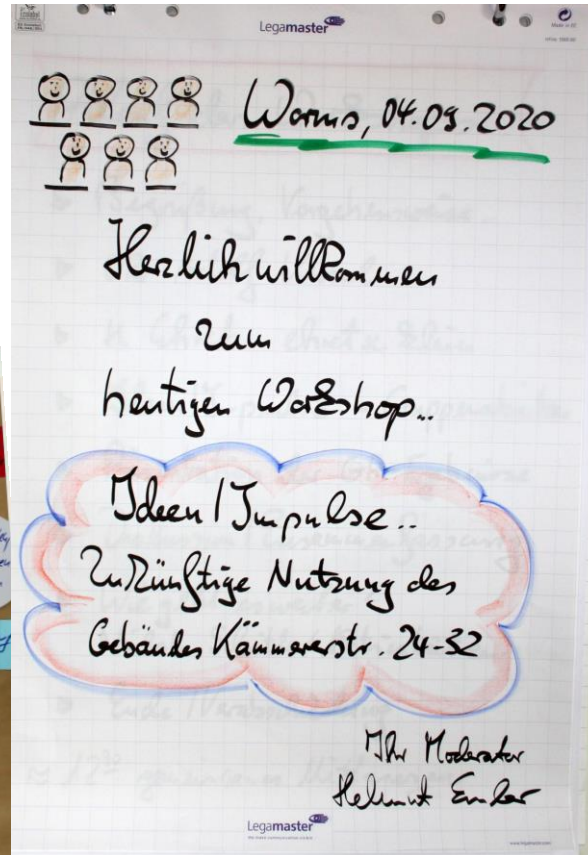 Legamaster
Worms, 04.09.2020
Herzlich willkommen
zum
heutigen Workshop..
Ideen / Impulse..
Zukünftige Nutzung des
Gebäudes Kämmererstr. 24-32
Ihr Moderator
Helmut
Legamaster